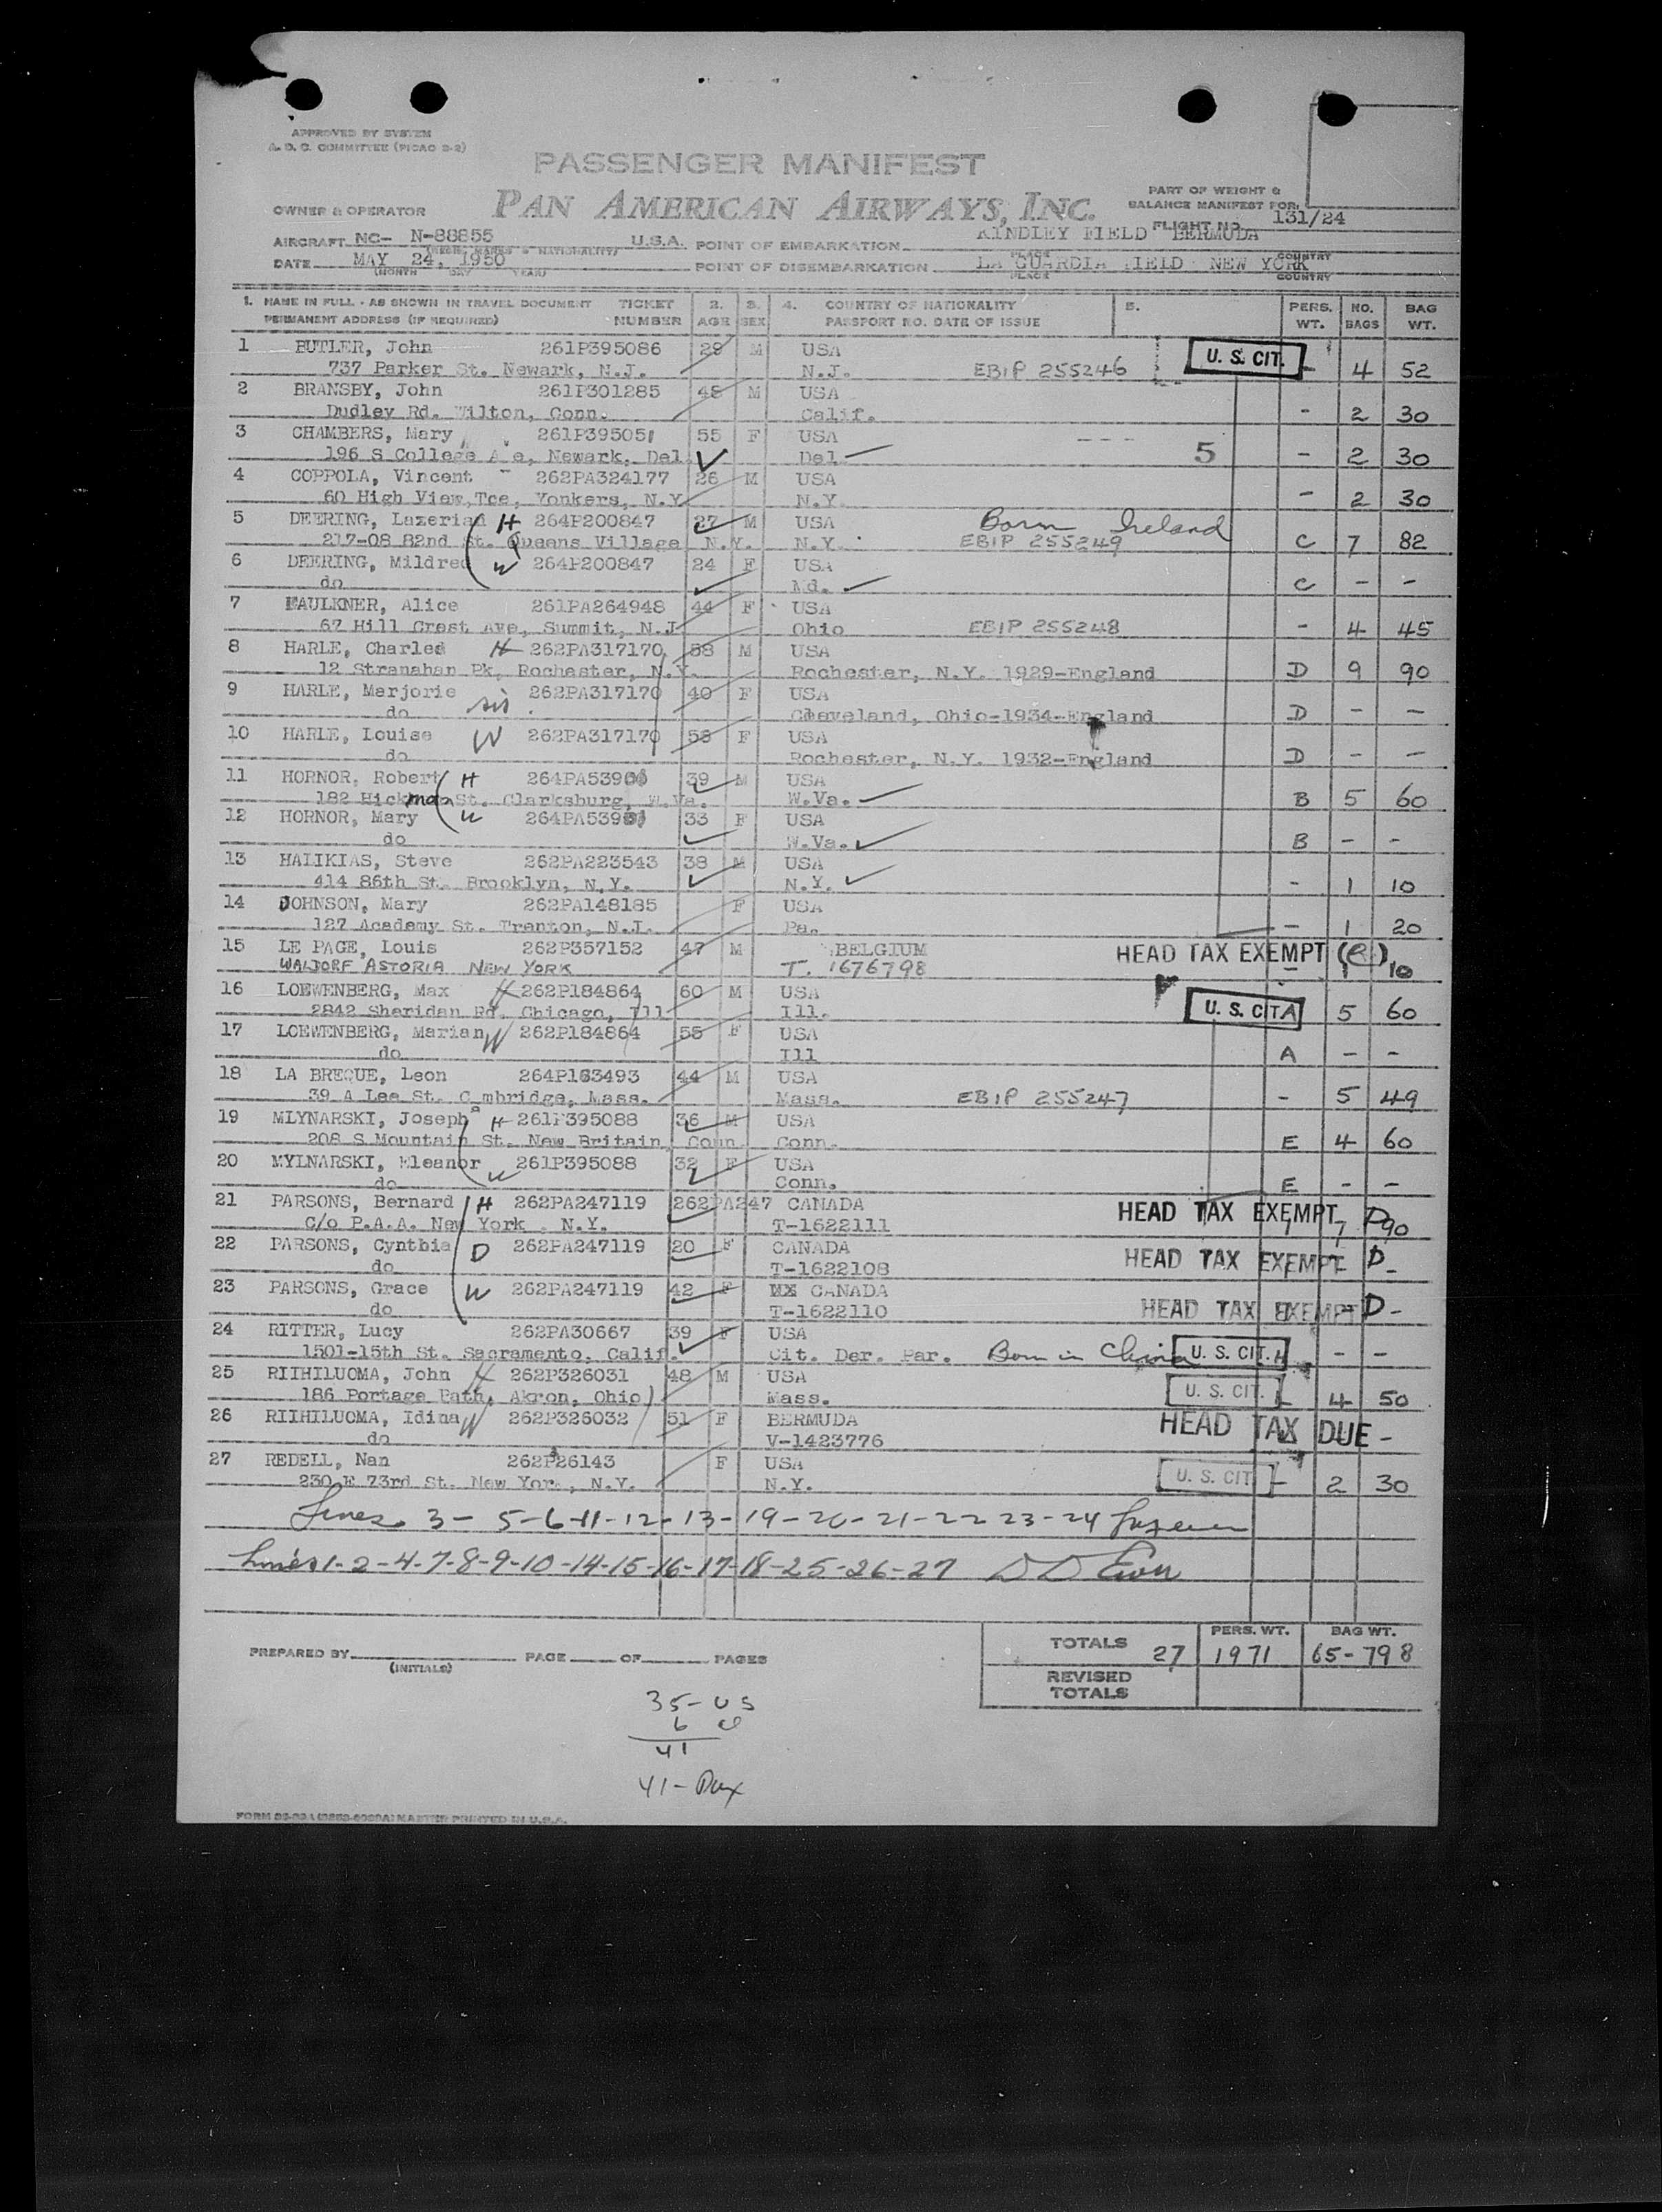 APPROVED BY SYSTEM
A. O. C. COMMITTEE (PICAO B-2)
PASSENGER MANIFEST
PAN AMERICAN AIRWAYS, INC.
PART OF WEIGHT &
BALANCE MANIFEST FOR
FLIGHT NO. 131/24
OWNER & OPERATOR
AIRCRAFT NC- N-88855 U.S.A. POINT OF EMBARKATION KINDLEY FIELD BERMUDA
DATE MAY 24, 1950 POINT OF DISEMBARKATION LA GUARDIA FIELD NEW YORK
(MONTH DAY YEAR) PLACE COUNTRY
1. NAME IN FULL - AS SHOWN IN TRAVEL DOCUMENT TICKET 2. 3. 4. COUNTRY OF NATIONALITY 5. PERS. NO. BAG
PERMANENT ADDRESS (IF REQUIRED) NUMBER AGE SEX PASSPORT NO. DATE OF ISSUE WT. BAGS WT.
1 BUTLER, John 261P395086 29 M USA U. S. CIT.
737 Parker St. Newark, N.J. N.J. EBIP 255246 - 4 52
2 BRANSBY, John 261P301285 48 M USA
Dudley Rd. Wilton, Conn. Calif. - 2 30
3 CHAMBERS, Mary 261P395051 55 F USA
196 S College A e, Newark, Del Del 5 - 2 30
4 COPPOLA, Vincent 262PA324177 26 M USA
60 High View Tce, Yonkers, N.Y N.Y. - 2 30
5 DEERING, Lazerian H 264P200847 27 M USA Born Ireland
217-08 82nd St. Queens Village N.Y. N.Y. EBIP 255249 C 7 82
6 DEERING, Mildred W 264P200847 24 F USA
do Md. C - -
7 FAULKNER, Alice 261PA264948 44 F USA
67 Hill Crest Ave, Summit, N.J Ohio EBIP 255248 - 4 45
8 HARLE, Charles H 262PA317170 58 M USA
12 Stranahan Pk, Rochester, N.Y. Rochester, N.Y. 1929-England D 9 90
9 HARLE, Marjorie sis. 262PA317170 40 F USA
do Cleveland, Ohio-1934-England D - -
10 HARLE, Louise W 262PA317170 58 F USA
do Rochester, N.Y. 1932-England D - -
11 HORNOR, Robert H 264PA5390 39 M USA
182 Hickman St. Clarksburg, W.Va. W.Va. B 5 60
12 HORNOR, Mary W 264PA539 33 F USA
do W.Va. B - -
13 HALIKIAS, Steve 262PA223543 38 M USA
414 86th St. Brooklyn, N.Y. N.Y. - 1 10
14 JOHNSON, Mary 262PA148185 F USA
127 Academy St. Trenton, N.J. Pa. - 1 20
15 LE PAGE, Louis 262P357152 47 M BELGIUM HEAD TAX EXEMPT
WALDORF ASTORIA NEW YORK T. 1676798 - 1 10
16 LOEWENBERG, Max H 262P184864 60 M USA
2842 Sheridan Rd. Chicago, Ill Ill. U. S. CIT A 5 60
17 LOEWENBERG, Marian W 262P184864 55 F USA
do Ill A - -
18 LA BREQUE, Leon 264P163493 44 M USA
39 A Lee St. Cambridge, Mass. Mass. EBIP 255247 - 5 49
19 MLYNARSKI, Joseph H 261P395088 36 M USA
208 S Mountain St. New Britain, Conn Conn. E 4 60
20 MYLNARSKI, Eleanor W 261P395088 32 F USA
do Conn. E - -
21 PARSONS, Bernard H 262PA247119 262PA247 CANADA HEAD TAX EXEMPT D
c/o P.A.A. New York N.Y. T-1622111 7 90
22 PARSONS, Cynthia D 262PA247119 20 F CANADA HEAD TAX EXEMPT D
do T-1622108 -
23 PARSONS, Grace W 262PA247119 42 F CANADA
do T-1622110 HEAD TAX EXEMPT D -
24 RITTER, Lucy 262PA30667 39 F USA
1501-15th St. Sacramento, Calif. Cit. Der. Par. Born in China U. S. CIT. - -
25 RIIHILUOMA, John H 262P326031 48 M USA
186 Portage Path, Akron, Ohio Mass. U. S. CIT. 4 50
26 RIIHILUOMA, Idina W 262P326032 51 F BERMUDA HEAD TAX DUE
do V-1423776 -
27 REDELL, Nan 262P26143 F USA
230 E 73rd St. New Yor , N.Y. N.Y. U. S. CIT - 2 30
Lines 3 - 5-6-11-12-13-19-20-21-22 23-24
Lines 1-2-4-7-8-9-10-14-15-16-17-18-25-26-27
TOTALS 27 PERS. WT. 1971 BAG WT. 65-798
REVISED
TOTALS
PREPARED BY (INITIALS) PAGE OF PAGES
35-US
6
41
41-Pax